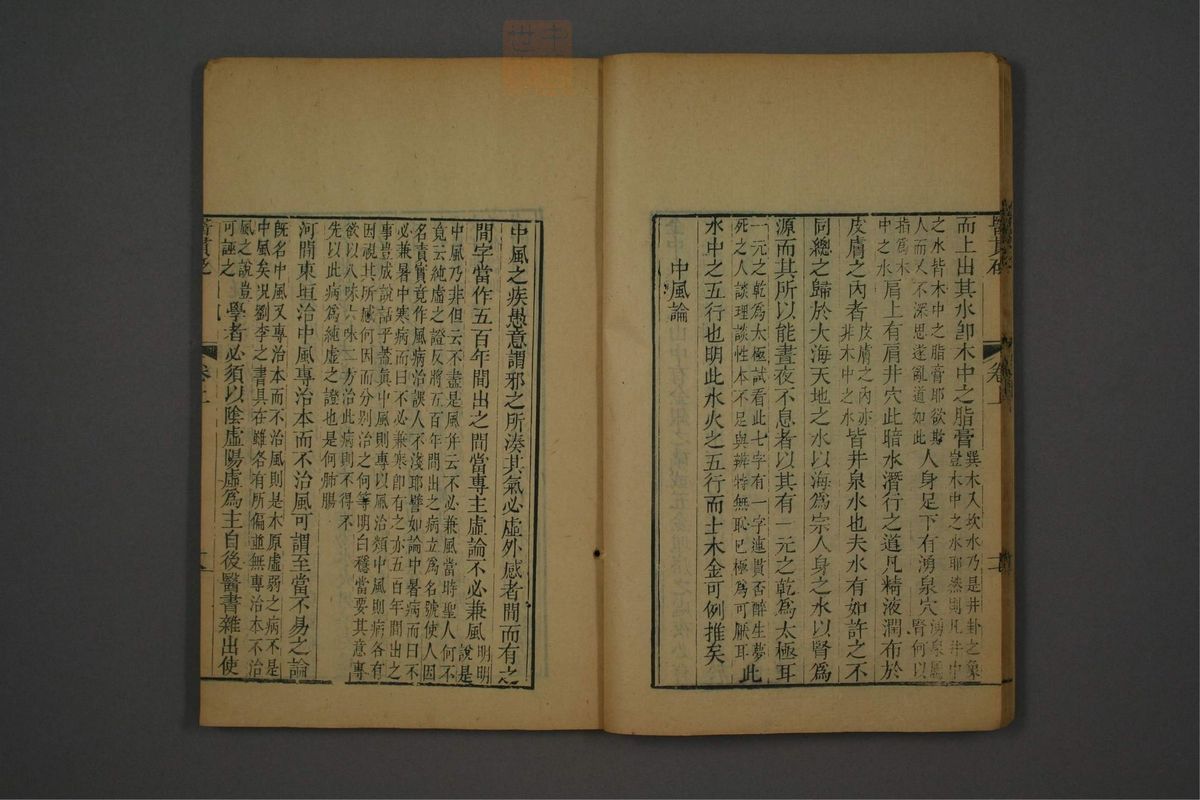 而上出其水卽木中之脂膏巽木入坎水乃是井卦之象豈木中之水耶然則凡井中
之水皆木中之脂膏耶欲欺人而又不深思遂亂道如此人身足下有湧泉穴湧泉腎何以
指爲木中之水肩上有肩井穴此暗水潛行之道凡精液潤布於
皮膚之內者皮膚之內亦非木中之水皆井泉水也夫水有如許之不
同總之歸於大海天地之水以海爲宗人身之水以腎爲
源而其所以能晝夜不息者以其有一元之乾爲太極耳
一元之乾爲太極試看此七字有一字連貫否醉生夢死之人談理談性本不足與辨特無恥已極爲可厭耳此
水中之五行也明此水火之五行而土木金可例推矣
中風論
中風之疾愚意謂邪之所湊其氣必虛外感者間而有之
間字當作五百年間出之間當專主虛論不必兼風明明說是
中風乃非但云不盡是風并云不必兼風當時聖人何不
竟云純虛之證反將五百年間出之病立爲名號使人因
名責實竟作風病治誤人不淺耶譬如論中暑病而曰不
必兼暑中寒病而曰不必兼寒卽有之亦五百年間出之
事豈成說話乎蓋眞中風則專以風治類中風則病各有
因視其所感何因而分别治之何等明白穩當要其意專
欲以八味六味二方治此病則不得不
先以此病爲純虛之證也是何肺腸
河間東垣治中風專治本而不治風可謂至當不易之論
旣名中風又專治本而不治風則是本原虛弱之病不是
中風矣况劉李之書具在雖各有所偏並無專治本不治
風之說豈可誣之學者必須以陰虛陽虛爲主自後醫書雜出使
卷上